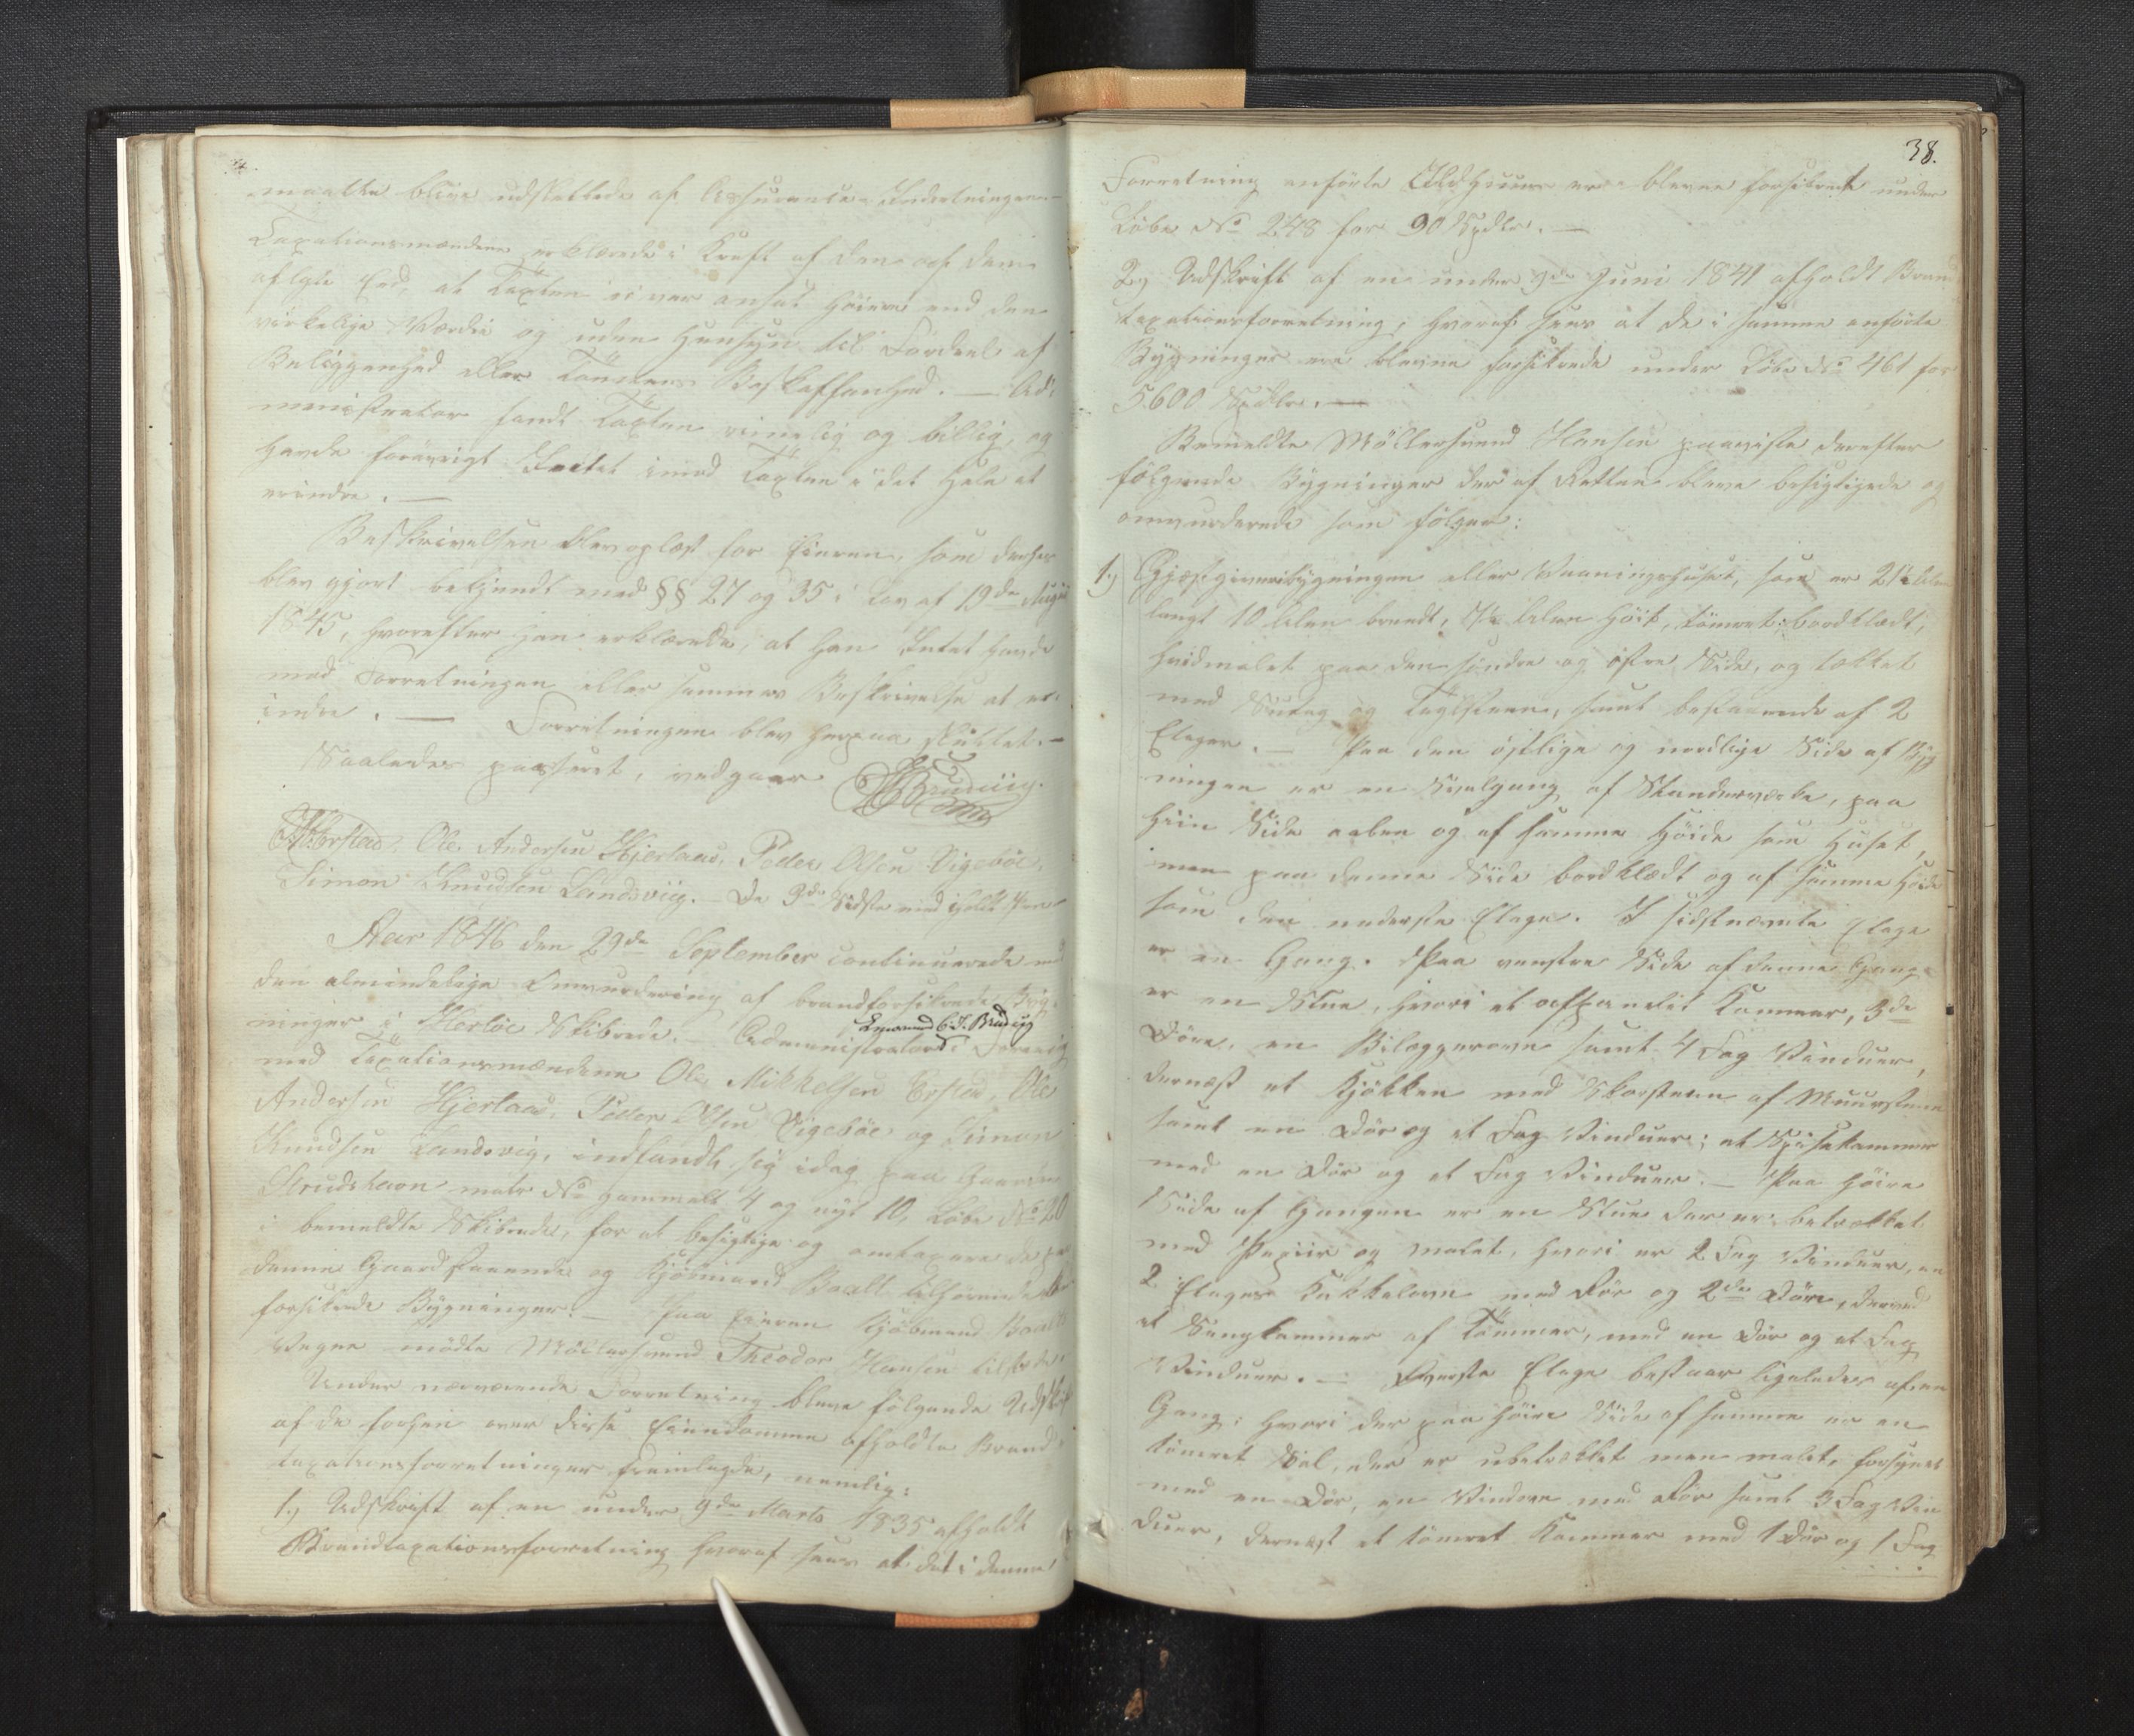 maatte blive udslettede af Assurance-Indretningen.
Taxationsmændene erklærede i Kraft af den af dem
aflagte Eed, at Taxten ei var ansat høiere end den
virkelige Værdie og uden Hensyn til Fordeel af
Beliggenhed eller Tomtens Beskaffenhed. — Ad-
ministrator fandt Taxten rimelig og billig, og
havde forøvrigt Intet imod Taxten i det Hele at
erindre. —
Beskrivelsen blev oplæst for Eieren, som derhos
blev gjort bekjendt med §§ 27 og 35 i Lov af 19de Augst
1845, hvorefter han erklærede, at han Intet havde
mod Forretningen eller sammes Beskrivelse at er-
indre. — Forretningen blev herpaa sluttet. —
Saaledes passeret, vedgaaer Brudviig.
O M Erstad. Ole Andersen Hjertaas, Peder Olsen Vigebøe,
Simon Knudsen Landsviig. — De 3de Sidste med iholdt Pen.
Aar 1846 den 29de September continueredes med
den almindelige Omvurdering af brandforsikrede Byg-
ninger i Herløe Skibrede. — Administrator i Forening
Lensmand C. J. Brudviig
med Taxationsmændene Ole Mikkelsen Erstad, Ole
Andersen Hjertaas, Peder Olsen Vigebøe og Simon
Knudsen Landsvig, indfandt sig idag paa Gaarden
Skudshavn matr No gammelt 4 og nyt 10, Løbe No 20
i bemeldte Skibrede, for at besigtige og omtaxere de paa
denne Gaard staaende og Kjøbmand Baalt tilhørende
forsikrede Bygninger. — Paa Eieren Kjøbmand Baalts
Vegne mødte Møllersvend Theodor Hansen tilstede.
Under nærværende Forretning bleve følgende Udskrift
af de forhen over disse Eiendomme afholdte Brand-
taxationsforretninger fremlagde, nemlig:
1.) Udskrift af en under 9de Marts 1835 afholdt
Brandtaxationsforretning hvoraf sees at det i denne
38.
Forretning anførte Ildhuus er blevne forsikret under
Løbe No 248 for 90 Spdlr. —
2.) Udskrift af en under 9de Juni 1841 afholdt Brand
taxationsforretning, hvoraf sees at de i samme anførte
Bygninger ere blevne forsikrede under Løbe No 461 for
5600 Spdlr. —
Bemeldte Møllersvend Hansen paaviste derefter
følgende Bygninger der af Retten bleve besigtigede og
omvurderede som følger:
1.) Gjæstgiveribygningen eller Vaaningshuset, som er 21½ Alen
langt 10 Alen bredt, 7½ Alen høit, tømret, bordklædt,
hvidmalet paa den søndre og østre Side, og tækket
med Sutag og Tagsteen, samt bestaaende af 2
Etager. — Paa den østlige og nordlige Side af Byg
ningen er en Svalgang af Stænderværke, paa
hiin Side aaben og af samme Høide som Huset,
men paa denne Side bordklædt og af samme Høide
som den nederste Etage. I sidstnævnte Etage
er en Gang. Paa venstre Side af denne Gang
er en Stue, hvori et afpanelet Kammer, 3de
Døre, en Bilæggerovn samt 4 Fag Vinduer,
dernæst et Kjøkken med Skorsteen af Muursteen
samt en Dør og et Fag Vinduer; et Spisekammer
med en Dør og et Fag Vinduer. — Paa høire
Side af Gangen er en Stue der er betrækket
med Papiir og malet, hvori er 2 Fag Vinduer, en
2 Etages Kakkelovn med Rør og 2de Døre, derved
et Sengkammer af Tømmer, med en Dør og et Fag
Vinduer. — Øverste Etage bestaar ligeledes af en
Gang, hvori der paa høire Side af samme er en
tømret Sal, der er ubetrækket men malet, forsynet
med en Dør, en Vindovn med Rør samt 3 Fag Vin
duer, dernæst et tømret Kammer med 1 Dør og 1 Fag